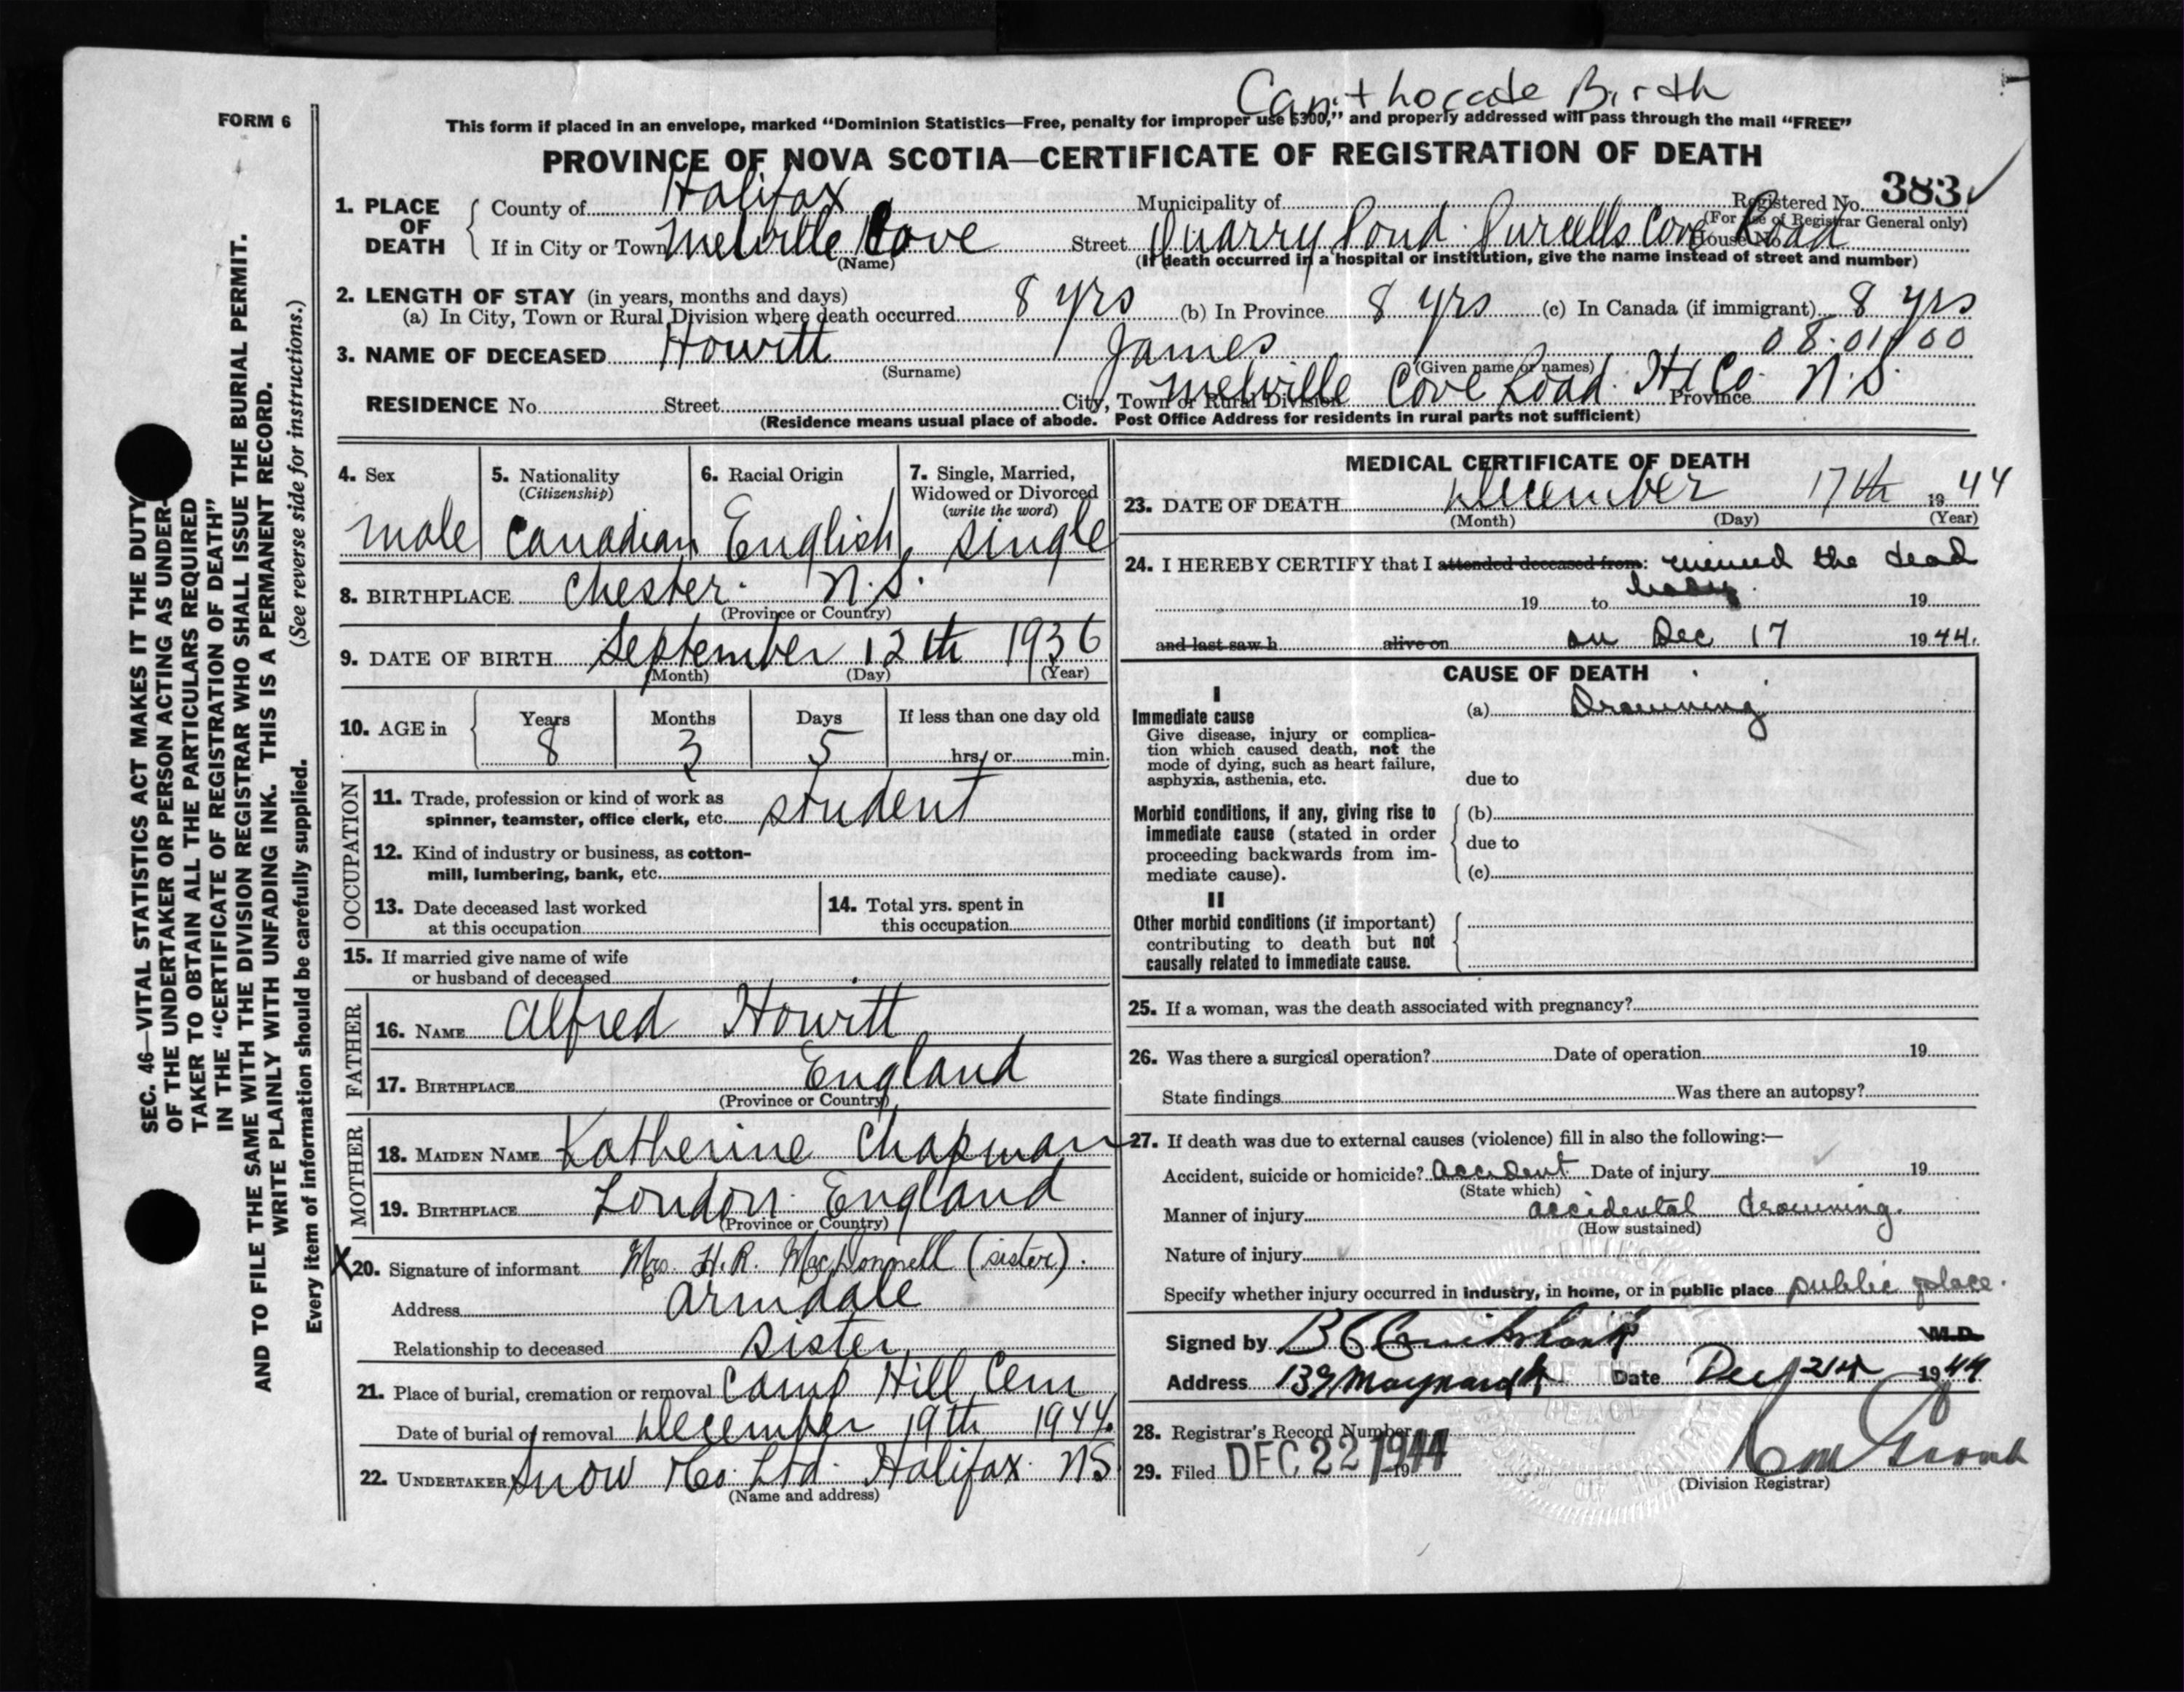 Can't locate Birth
FORM 6
This form if placed in an envelope, marked “Dominion Statistics—Free, penalty for improper use $300,” and properly addressed will pass through the mail “FREE”
PROVINCE OF NOVA SCOTIA—CERTIFICATE OF REGISTRATION OF DEATH
Registered No. 383
(For use of Registrar General only)
1. PLACE OF DEATH
County of Halifax Municipality of
If in City or Town Melville Cove Street Quarry Pond Purcells Cove Road House No.
(Name) (If death occurred in a hospital or institution, give the name instead of street and number)
2. LENGTH OF STAY (in years, months and days)
(a) In City, Town or Rural Division where death occurred 8 yrs (b) In Province 8 yrs (c) In Canada (if immigrant) 8 yrs
08.01.00
3. NAME OF DECEASED Howitt James
(Surname) (Given name or names)
RESIDENCE No. Street City, Town or Rural Division Melville Cove Road. Hx Co. Province N.S.
(Residence means usual place of abode. Post Office Address for residents in rural parts not sufficient)
4. Sex male
5. Nationality (Citizenship) Canadian
6. Racial Origin English
7. Single, Married, Widowed or Divorced (write the word) single
8. BIRTHPLACE Chester. N.S.
(Province or Country)
9. DATE OF BIRTH September 12th 1936
(Month) (Day) (Year)
10. AGE in Years 8 Months 3 Days 5 If less than one day old hrs. or min.
OCCUPATION
11. Trade, profession or kind of work as
spinner, teamster, office clerk, etc. student
12. Kind of industry or business, as cotton-
mill, lumbering, bank, etc.
13. Date deceased last worked
at this occupation
14. Total yrs. spent in
this occupation
15. If married give name of wife
or husband of deceased
FATHER
16. NAME Alfred Howitt
17. BIRTHPLACE England
(Province or Country)
MOTHER
18. MAIDEN NAME Katherine Chapman
19. BIRTHPLACE London England
(Province or Country)
X 20. Signature of informant Mrs. H.R. MacDonnell (sister).
Address Armdale
Relationship to deceased sister
21. Place of burial, cremation or removal Camp Hill Cem
Date of burial or removal December 19th 1944.
22. UNDERTAKER Snow & Co. Ltd. Halifax NS
(Name and address)
MEDICAL CERTIFICATE OF DEATH
23. DATE OF DEATH December 17th 1944
(Month) (Day) (Year)
24. I HEREBY CERTIFY that I attended deceased from: viewed the dead
19 to body 19
and last saw h alive on on Dec 17 1944.
CAUSE OF DEATH
I
Immediate cause
Give disease, injury or complica-
tion which caused death, not the
mode of dying, such as heart failure,
asphyxia, asthenia, etc.
(a) Drowning
due to
Morbid conditions, if any, giving rise to
immediate cause (stated in order
proceeding backwards from im-
mediate cause).
(b)
due to
(c)
II
Other morbid conditions (if important)
contributing to death but not
causally related to immediate cause.
25. If a woman, was the death associated with pregnancy?
26. Was there a surgical operation? Date of operation 19
State findings Was there an autopsy?
27. If death was due to external causes (violence) fill in also the following:—
Accident, suicide or homicide? accident Date of injury 19
(State which)
Manner of injury accidental drowning.
(How sustained)
Nature of injury
Specify whether injury occurred in industry, in home, or in public place public place.
Signed by M.D.
Address 139 Maynard St Date Dec 21st 1944
28. Registrar's Record Number
29. Filed DEC 22 1944 19
(Division Registrar)
SEC. 46—VITAL STATISTICS ACT MAKES IT THE DUTY
OF THE UNDERTAKER OR PERSON ACTING AS UNDER-
TAKER TO OBTAIN ALL THE PARTICULARS REQUIRED
IN THE “CERTIFICATE OF REGISTRATION OF DEATH”
AND TO FILE THE SAME WITH THE DIVISION REGISTRAR WHO SHALL ISSUE THE BURIAL PERMIT.
WRITE PLAINLY WITH UNFADING INK. THIS IS A PERMANENT RECORD.
Every item of information should be carefully supplied. (See reverse side for instructions.)